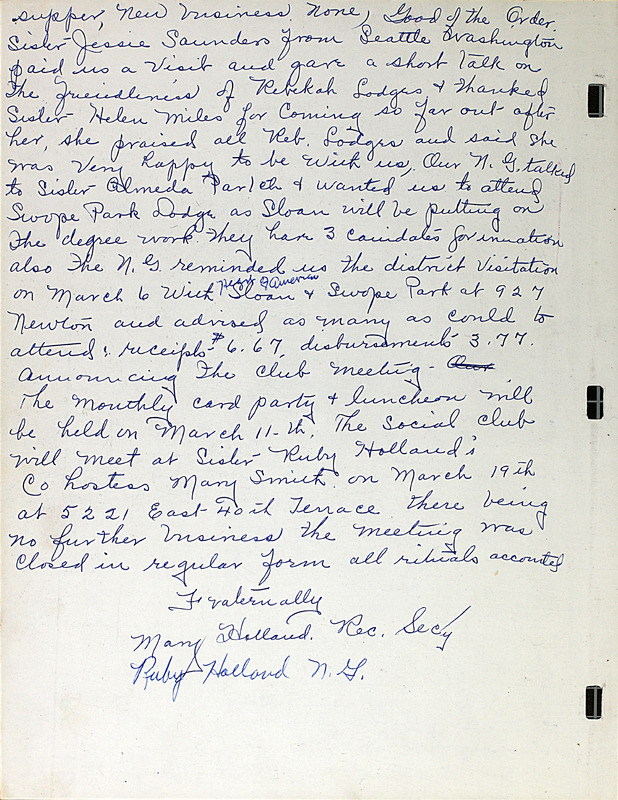 supper, New Business. None, Good of the Order
Sister Jessie Saunders from Seattle Washington
paid us a Visit and gave a short talk on
the freindliness of Rebekah Lodges & thanked
Sister Helen Miles for coming so far out after
her, she praised all Reb. Lodges and said she
was Very happy to be with us, Our N. G. talked
to Sister Almeda & wanted us to attend
Swope Park Lodge as Sloan will be putting on
the degree work. they have 3 for
also the N. G. reminded us the district Visitation
on March 6 With Sloan & Swope Park at 927
of America
Newton and advised as many as could to
attend. receipts $6.67, disbursements 3.77.
announcing the club meeting - Our
The monthly card party & luncheon will
be held on March 11-th. The Social club
will meet at Sister Ruby Holland's
Co hostess Mary Smith. on March 19th
at 5221 East 40th Terrace. there being
no further business the meeting was
closed in regular form all rituals accounted
Fraternally
Mary Holland. Rec. Secy
Ruby Holland N. G.